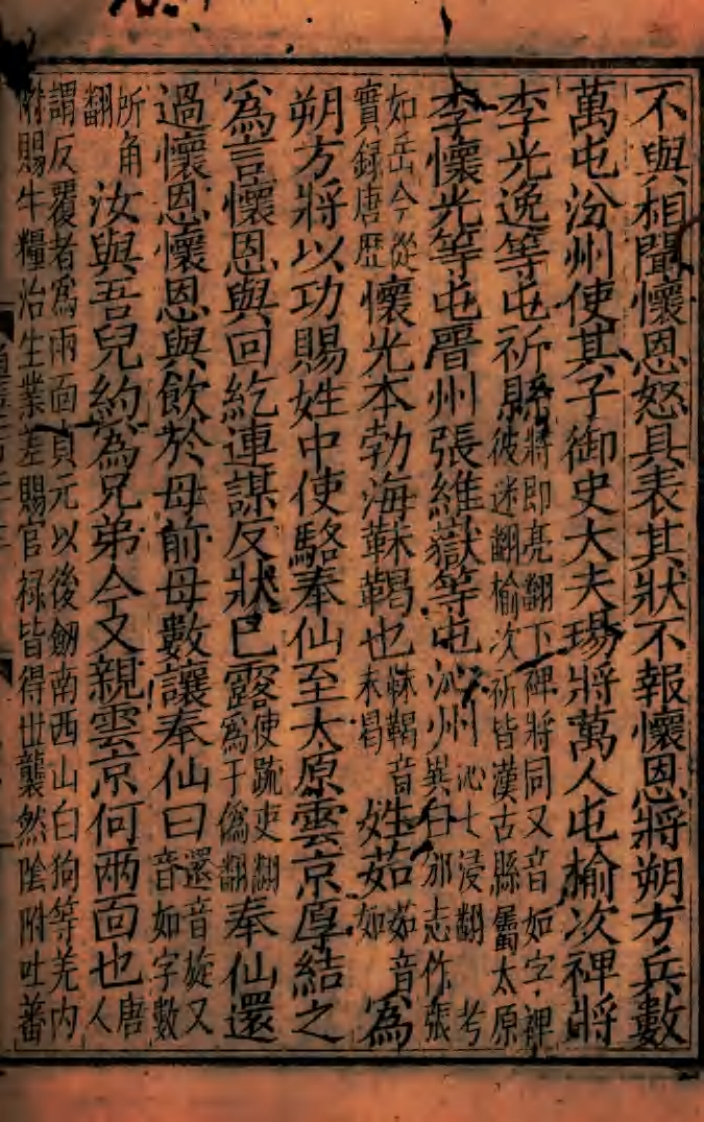 不與相聞懷恩怒具表其狀不報懷恩將朔方兵數
萬屯汾州使其子御史大夫瑒將萬人屯榆次裨將
李光逸等屯祈縣將即亮翻下裨將同又音如字裨彼迷翻榆次祈皆漢古縣屬太原
李懷光等屯晉州張維嶽等屯沁州沁七浸翻考異曰邠志作張
如岳今從實録唐歷懷光本勃海靺鞨也靺鞨音末曷姓茹茹音如爲
朔方將以功賜姓中使駱奉仙至太原雲京厚結之
爲言懷恩與回紇連謀反狀已露使疏吏翻爲于僞翻奉仙還
過懷恩懷恩與飲於母前母數讓奉仙曰還音旋又音如字數
所角翻汝與吾兒約爲兄弟今又親雲京何兩面也唐人
謂反覆者爲兩面貞元以後劒南西山白狗等羌内附賜牛糧治生業差賜官禄皆得世襲然陰附吐蕃